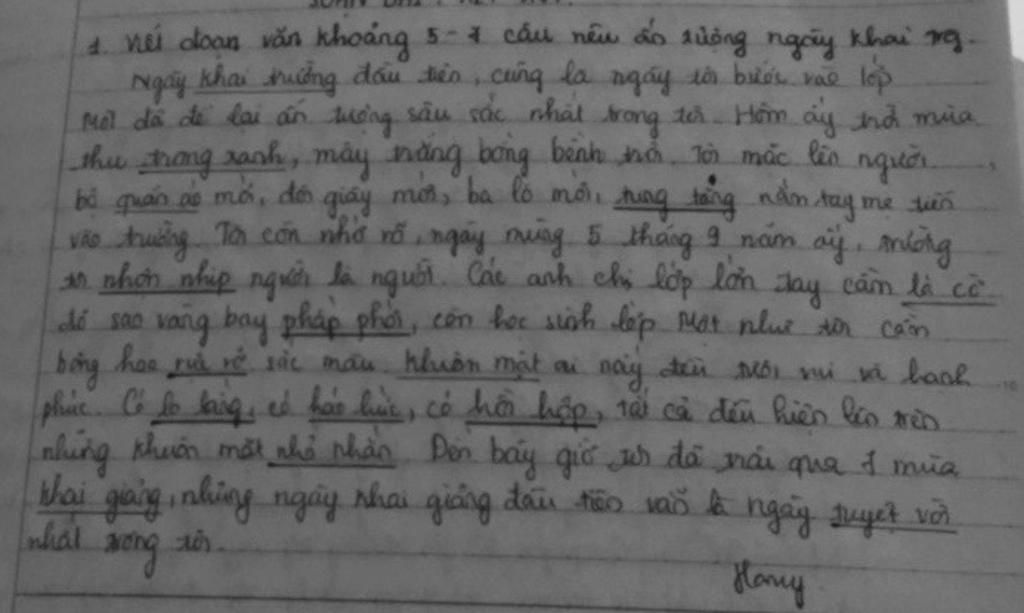 1. Viết đoạn văn khoảng 5-7 câu nêu ấn tượng ngày khai trg.
Ngày khai trường đầu tiên, cũng là ngày tôi bước vào lớp
Một đã để lại ấn tượng sâu sắc nhất trong tôi. Hôm ấy trời mùa
thu trong xanh, mây trắng bồng bềnh trôi. Tôi mặc lên người
bộ quần áo mới, đôi giày mới, ba lô mới, tung tăng nắm tay mẹ tiến
vào trường. Tôi còn nhớ rõ, ngày mùng 5 tháng 9 năm ấy, trường
tôi nhộn nhịp người là người. Các anh chị lớp lớn tay cầm lá cờ
đỏ sao vàng bay phấp phới, còn học sinh lớp Một như tôi cầm
bông hoa rực rỡ sắc màu. Khuôn mặt ai nấy đều tươi vui và hạnh
phúc. Có lo lắng, có háo hức, có hồi hộp, tất cả đều hiện lên trên
những khuôn mặt nhỏ nhắn. Đến bây giờ tôi đã trải qua 7 mùa
khai giảng, nhưng ngày khai giảng đầu tiên vẫn là ngày tuyệt vời
nhất trong tôi.